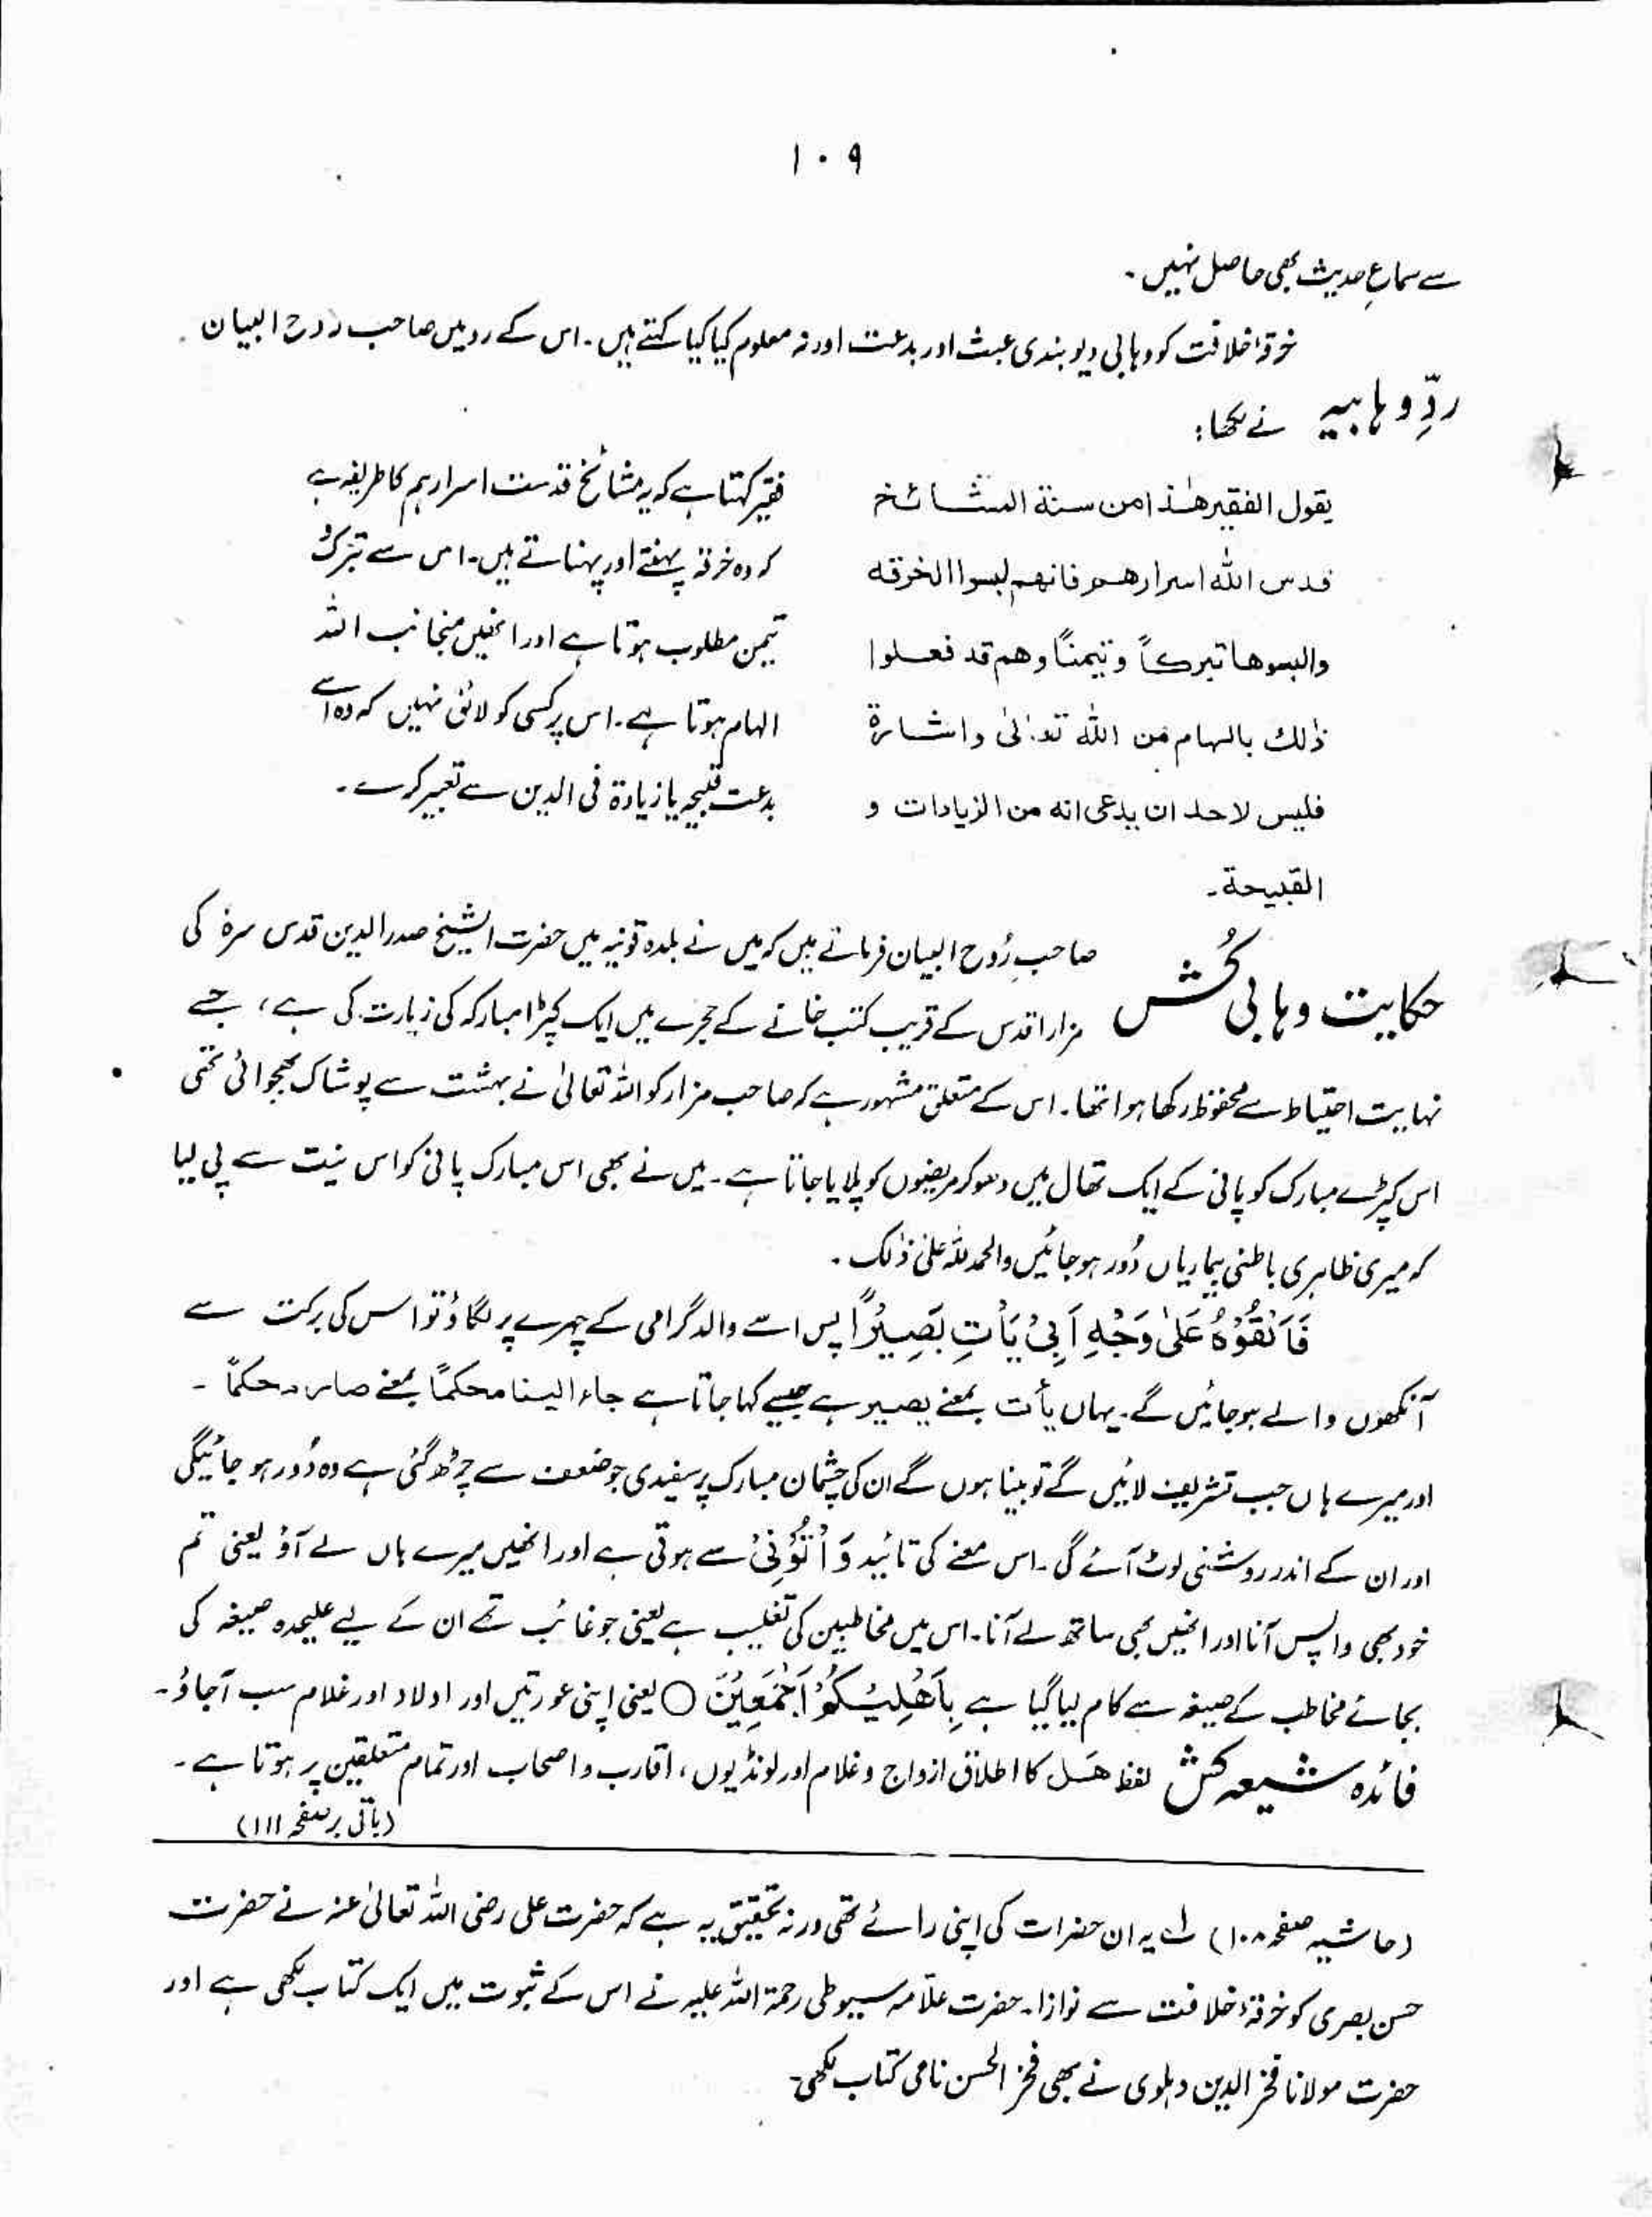 ۱۰۹
سے سماعِ حدیث بھی حاصل نہیں۔
خرقۂ خلافت کو وہابی دیوبندی عبث اور بدعت اور نہ معلوم کیا کیا کہتے ہیں۔ اس کے رد میں صاحب روح البیان
ردِّ وہابیہ نے لکھا:
يقول الفقير هٰذا من سنة المشائخ
قدس الله اسرارهم فانهم لبسوا الخرقه
والبسوها تبركاً وتيمناً وهم قد فعلوا
ذٰلك بالهام من الله تعالىٰ واشارة
فليس لاحد ان يدعى انه من الزيادات و
القبيحة۔
فقیر کہتا ہے کہ یہ مشائخ قدست اسرارہم کا طریقہ ہے
کہ وہ خرقہ پہنتے اور پہناتے ہیں۔ اس سے تبرک و
تیمن مطلوب ہوتا ہے اور انھیں منجانب اللہ
الہام ہوتا ہے۔ اس پر کسی کو لائق نہیں کہ وہ اسے
بدعت قبیحہ یا زیادۃ فی الدین سے تعبیر کرے۔
حکایت وہابی کُش صاحبِ رُوح البیان فرماتے ہیں کہ میں نے بلدہ قونیہ میں حضرت الشیخ صدر الدین قدس سرہٗ کی
مزار اقدس کے قریب کتب خانے کے حجرے میں ایک کپڑا مبارکہ کی زیارت کی ہے، جسے
نہایت احتیاط سے محفوظ رکھا ہوا تھا۔ اس کے متعلق مشہور ہے کہ صاحب مزار کو اللہ تعالیٰ نے بہشت سے پوشاک بھجوائی تھی
اس کپڑے مبارک کو پانی کے ایک تھال میں دھو کر مریضوں کو پلایا جاتا ہے۔ میں نے بھی اس مبارک پانی کو اس نیت سے پی لیا
کہ میری ظاہری باطنی بیماریاں دُور ہو جائیں والحمد للہ علیٰ ذٰلک۔
فَاَلْقُوْهُ عَلٰى وَجْهِ اَبِىْ يَاْتِ بَصِيْرًا پس اسے والد گرامی کے چہرے پر لگاؤ تو اس کی برکت سے
آنکھوں والے ہوجائیں گے۔ یہاں یأت بمعنے یصیر ہے جیسے کہا جاتا ہے جاء الینا محکماً بمعنے صار محکماً۔
اور میرے ہاں جب تشریف لائیں گے تو بینا ہوں گے ان کی چشمان مبارک پر سفیدی جو ضعف سے چڑھ گئی ہے وہ دُور ہو جائیگی
اور ان کے اندر روشنی لوٹ آئے گی۔ اس معنے کی تائید وَاْتُوْنِىْ سے ہوتی ہے اور انھیں میرے ہاں لے آؤ یعنی تم
خود بھی واپس آنا اور انھیں بھی ساتھ لے آنا۔ اس میں مخاطبین کی تغلیب ہے یعنی جو غائب تھے ان کے لیے علیحدہ صیغہ کی
بجائے مخاطب کے صیغہ سے کام لیا گیا ہے بِاَهْلِكُمْ اَجْمَعِيْنَ ○ یعنی اپنی عورتیں اور اولاد اور غلام سب آجاؤ۔
فائدہ شیعہ کش لفظ هَل کا اطلاق ازواج و غلام اور لونڈیوں، اقارب و اصحاب اور تمام متعلقین پر ہوتا ہے۔
(باقی بر صفحہ ۱۱۱)
(حاشیہ صفحہ ۱۰۸) لے یہ ان حضرات کی اپنی رائے تھی ورنہ تحقیق یہ ہے کہ حضرت علی رضی اللہ تعالیٰ عنہ نے حضرت
حسن بصری کو خرقۂ خلافت سے نوازا۔ حضرت علّامہ سیوطی رحمۃ اللہ علیہ نے اس کے ثبوت میں ایک کتاب لکھی ہے اور
حضرت مولانا فخر الدین دہلوی نے بھی فخر الحسن نامی کتاب لکھی۔